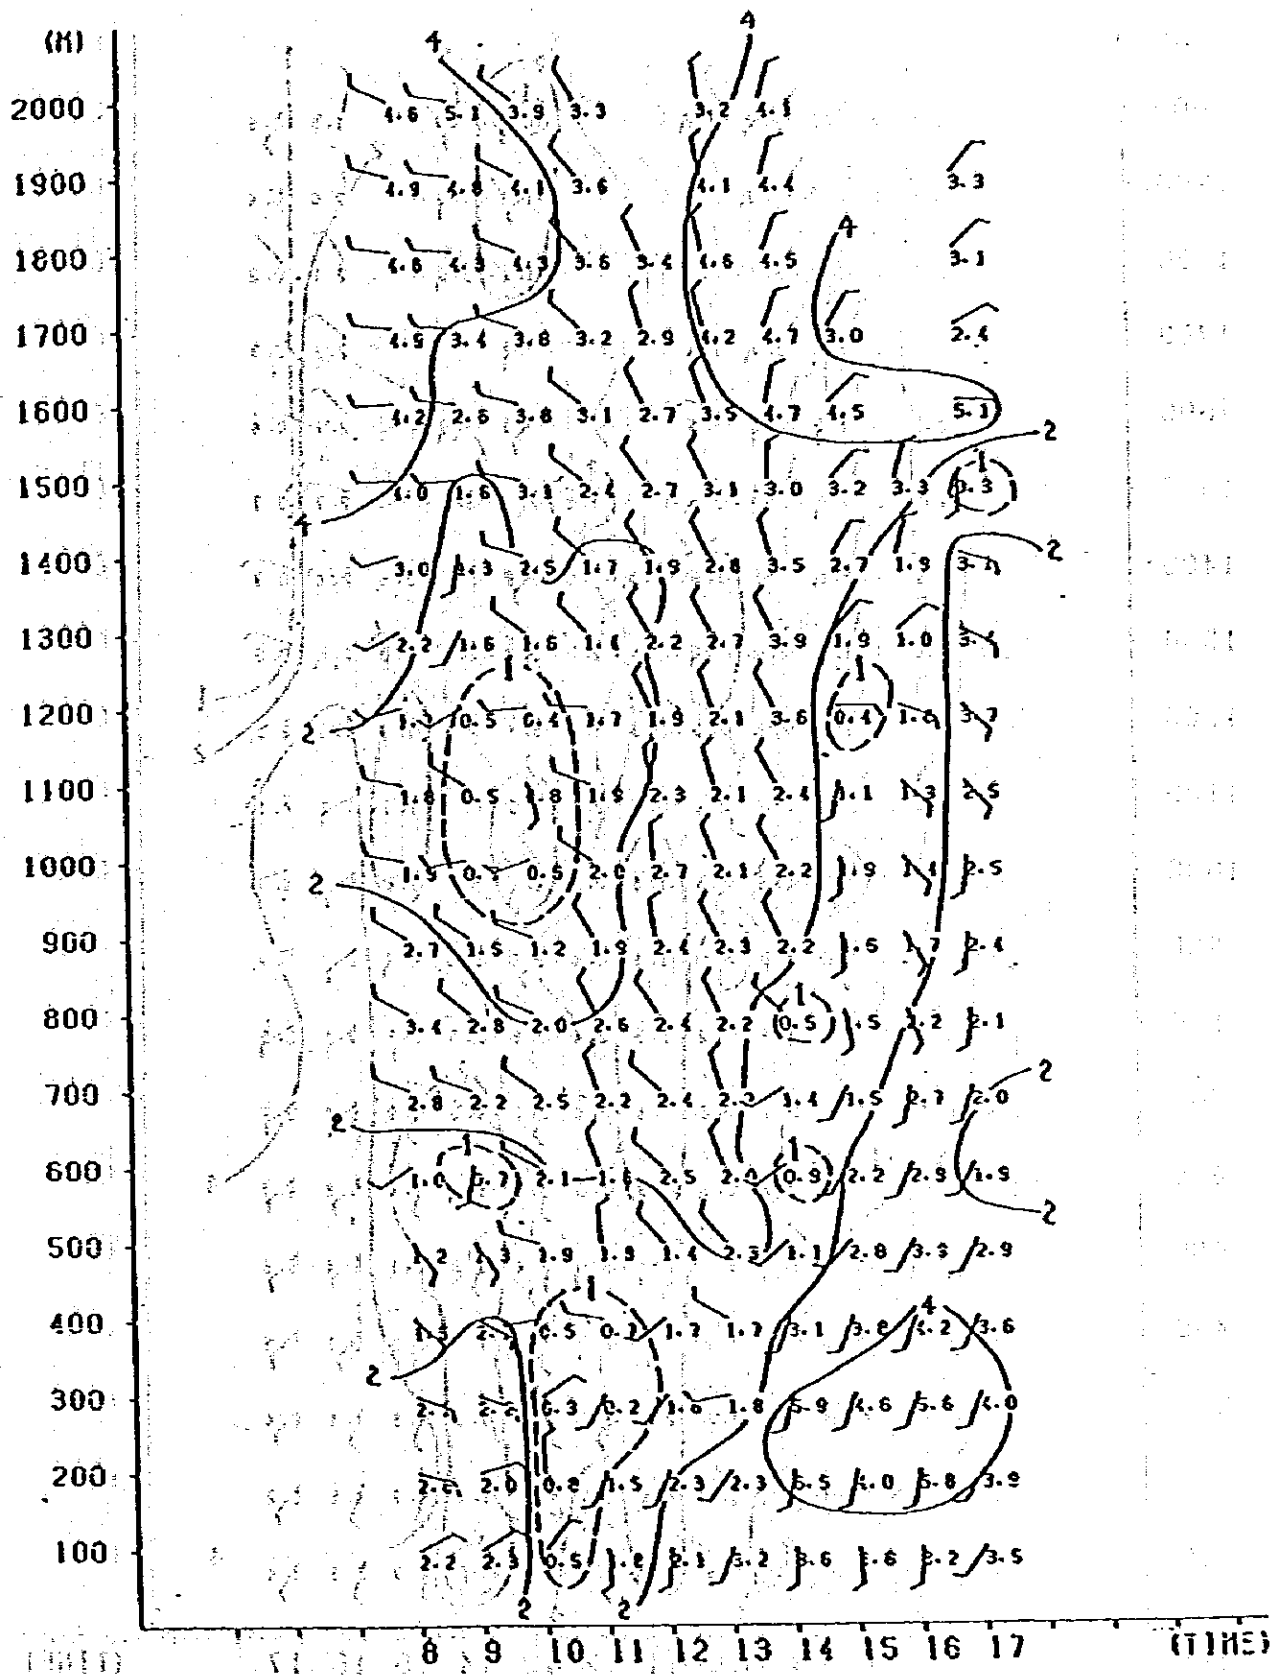 4 4
(M)
2000 4.6 5.1 3.9 3.3 3.2 4.1
1900 4.9 4.8 4.1 3.6 4.1 4.4 3.3
4
1800 4.6 4.3 4.3 3.6 3.4 4.6 4.5 3.1
1700 4.5 3.4 3.8 3.2 2.9 4.2 4.7 3.0 2.4
1600 4.2 2.6 3.8 3.1 2.7 3.5 4.7 4.5 5.1
2
1
1500 4.0 1.6 3.1 2.4 2.7 3.1 3.0 3.2 3.3 0.3
4
2
1400 3.0 2.5 1.7 1.9 2.8 3.5 2.7 1.9
1300 2.2 1.6 1.6 1.4 2.2 2.7 3.9 1.9 1.0
1 1
1200 0.5 0.4 1.7 1.9 2.1 3.6 0.4 3.7
2
1100 1.8 0.5 1.8 1.5 2.3 2.1 2.4 1.1 1.3 2.5
1000 1.5 0.5 2.0 2.7 2.1 2.2 1.9 1.4 2.5
2
900 2.7 1.5 1.2 1.9 2.4 2.3 2.2 1.6 1.7 2.4
1
800 3.4 2.8 2.0 2.6 2.4 2.2 0.5 1.5 2.2 2.1
2
700 2.8 2.2 2.5 2.2 2.4 2.3 1.4 1.5 2.7 2.0
2
1 1
600 1.0 0.7 2.1 1.6 2.5 2.0 0.9 2.2 2.9 1.9
2
500 1.2 1.3 1.9 1.9 1.4 2.3 1.1 2.8 3.5 2.9
1 4
400 0.5 0.2 1.7 1.7 3.1 3.8 4.2 3.6
2
300 0.3 0.2 1.6 1.8 5.9 4.6 5.6 4.0
200 2.0 0.8 1.5 2.3 2.3 5.5 4.0 5.8 3.9
100 2.2 2.3 0.5 1.2 2.1 3.2 3.6 3.6 3.2 3.5
2 2
8 9 10 11 12 13 14 15 16 17 (TIME)